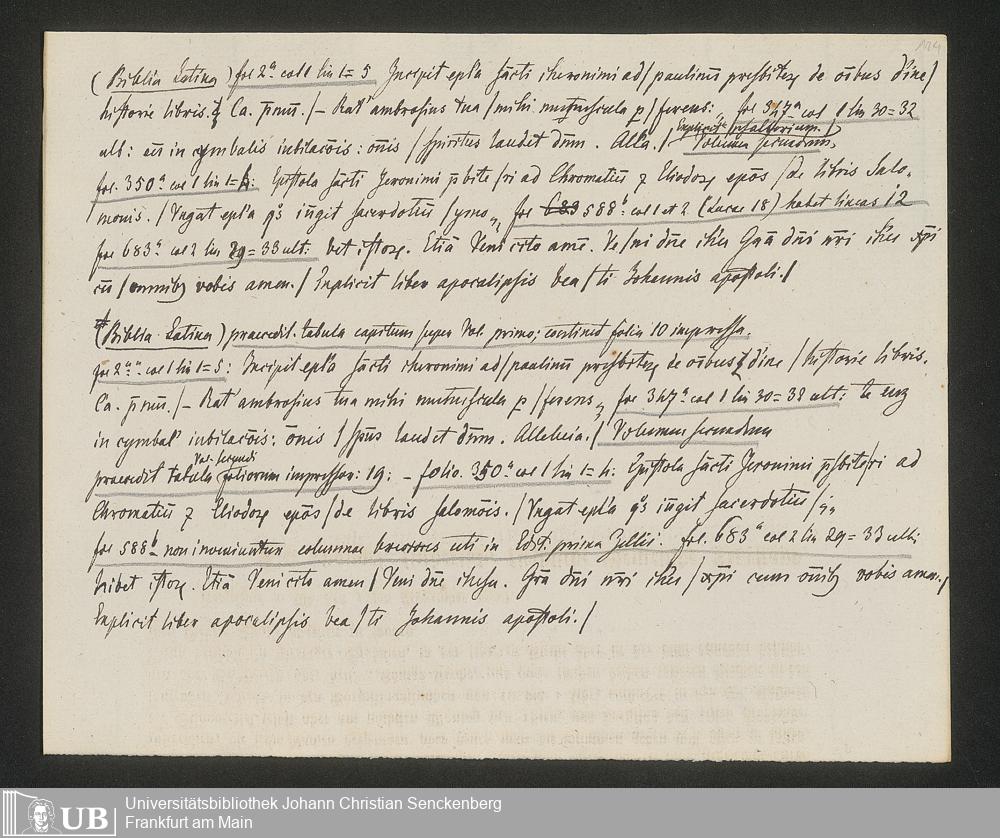 124
(Biblia Latina) fol 2ᵃ col 1 lin 1=5 Incipit epl'a sā​cti iheronimi ad / paulinū presbiteꝝ de oībus dīne /
historie libris. Ca. p̄mū. /– Rat' ambrosius tua / mihi munuscula p / ferens: fol 347ᵃ col 1 lin 30=32
ult: eū in cymbalis iubilacōis: oīnis / spiritus laudet dn̄m. Alla. / Explicit psalterium. /
Volumen secundum,
fol. 350ᵃ col 1 lin 1=4: Epistola sā​cti Jeronimi p̄sbite / ri ad Chromatiū ⁊ Eliodoꝝ epōs / de libris Salo-
monis. / Vngat epl'a q̊s iūgit sacerdotiū / ymo fol 588ᵇ col 1 et 2 (Lucae 18) habet lineas 12
fol 683ᵃ col 2 lin 29=33 ult: bet istoꝝ. Etiā Veni cito amē. Ve / ni dn̄e ihū Gr̄a dn̄i nr̄i ihū xp̄i
cū / omnibꝫ vobis amen. / Explicit liber apocalipsis bea / ti Johannis apostoli. /
(Biblia Latina) praecedit tabula capitum super Vol. primo; continet folia 10 impressa,
fol 2ᵃ col 1 lin 1=5: Incipit epl'a sā​cti iheronimi ad / paulinū presbiteꝝ de oībus dīne / historie libris.
Ca. p̄mū. /– Rat' ambrosius tua mihi munuscula p / ferens fol 347ᵃ col 1 lin 30=32 ult:
in cymbal' iubilacōis: ōnis / sp̄us laudet dn̄m. Alleluia. / Volumen secundum
praecedit tabula Vol. secundi foliorum impressor: 19: – folio 350ᵃ col 1 lin 1=4: Epistola sā​cti Jeronimi p̄sbite / ri ad
Chromatiū ⁊ Eliodoꝝ epōs / de libris salomōis. / Vngat epl'a q̊s iūgit sacerdotiū /
fol 588ᵇ non inveniuntur columnae breviores uti in Edit. prima fol. 683ᵃ col 2 lin 29=33 ult:
hibet istoꝝ. Etiā Veni cito amen / Veni dn̄e ihesu. Gr̄a dn̄i nr̄i ihū / xp̄i cum oīnibꝫ vobis amen. /
Explicit liber apocalipsis bea / ti Johannis apostoli. /
UB
Universitätsbibliothek Johann Christian Senckenberg
Frankfurt am Main